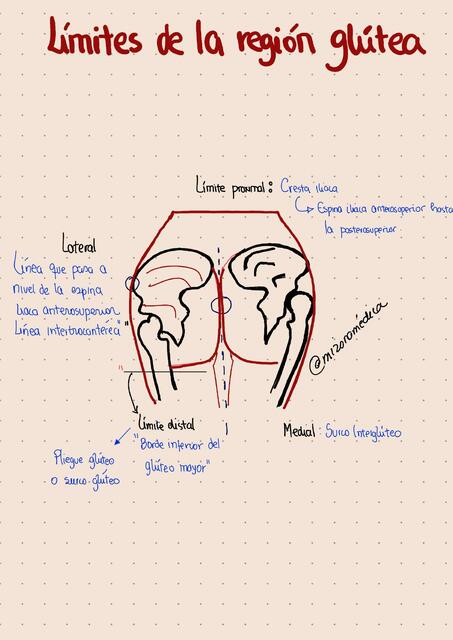 Límites de la región glútea
Límite proximal: Cresta iliaca
Espina iliaca anterosuperior hasta
la posterosuperior
Lateral
Línea que pasa a
nivel de la espina
iliaca anterosuperior
"Línea intertrocantérea"
@mizonamédica
Límite distal
"Borde inferior del
glúteo mayor"
Pliegue glúteo
o surco glúteo
Medial: Surco Interglúteo